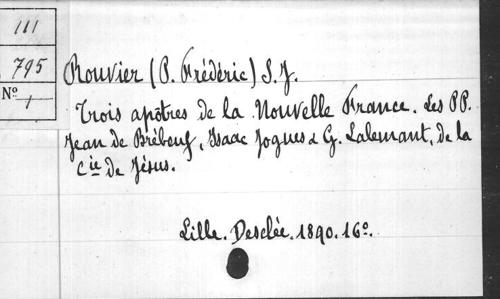 III
795
Nº 1
Rouvier (P. Frédéric) S. J.
Trois apôtres de la Nouvelle France. Les PP.
Jean de Brébeuf, Isaac Jogues & G. Lalemant, de la
Cie de Jésus.
Lille. Desclée. 1890. 16º.